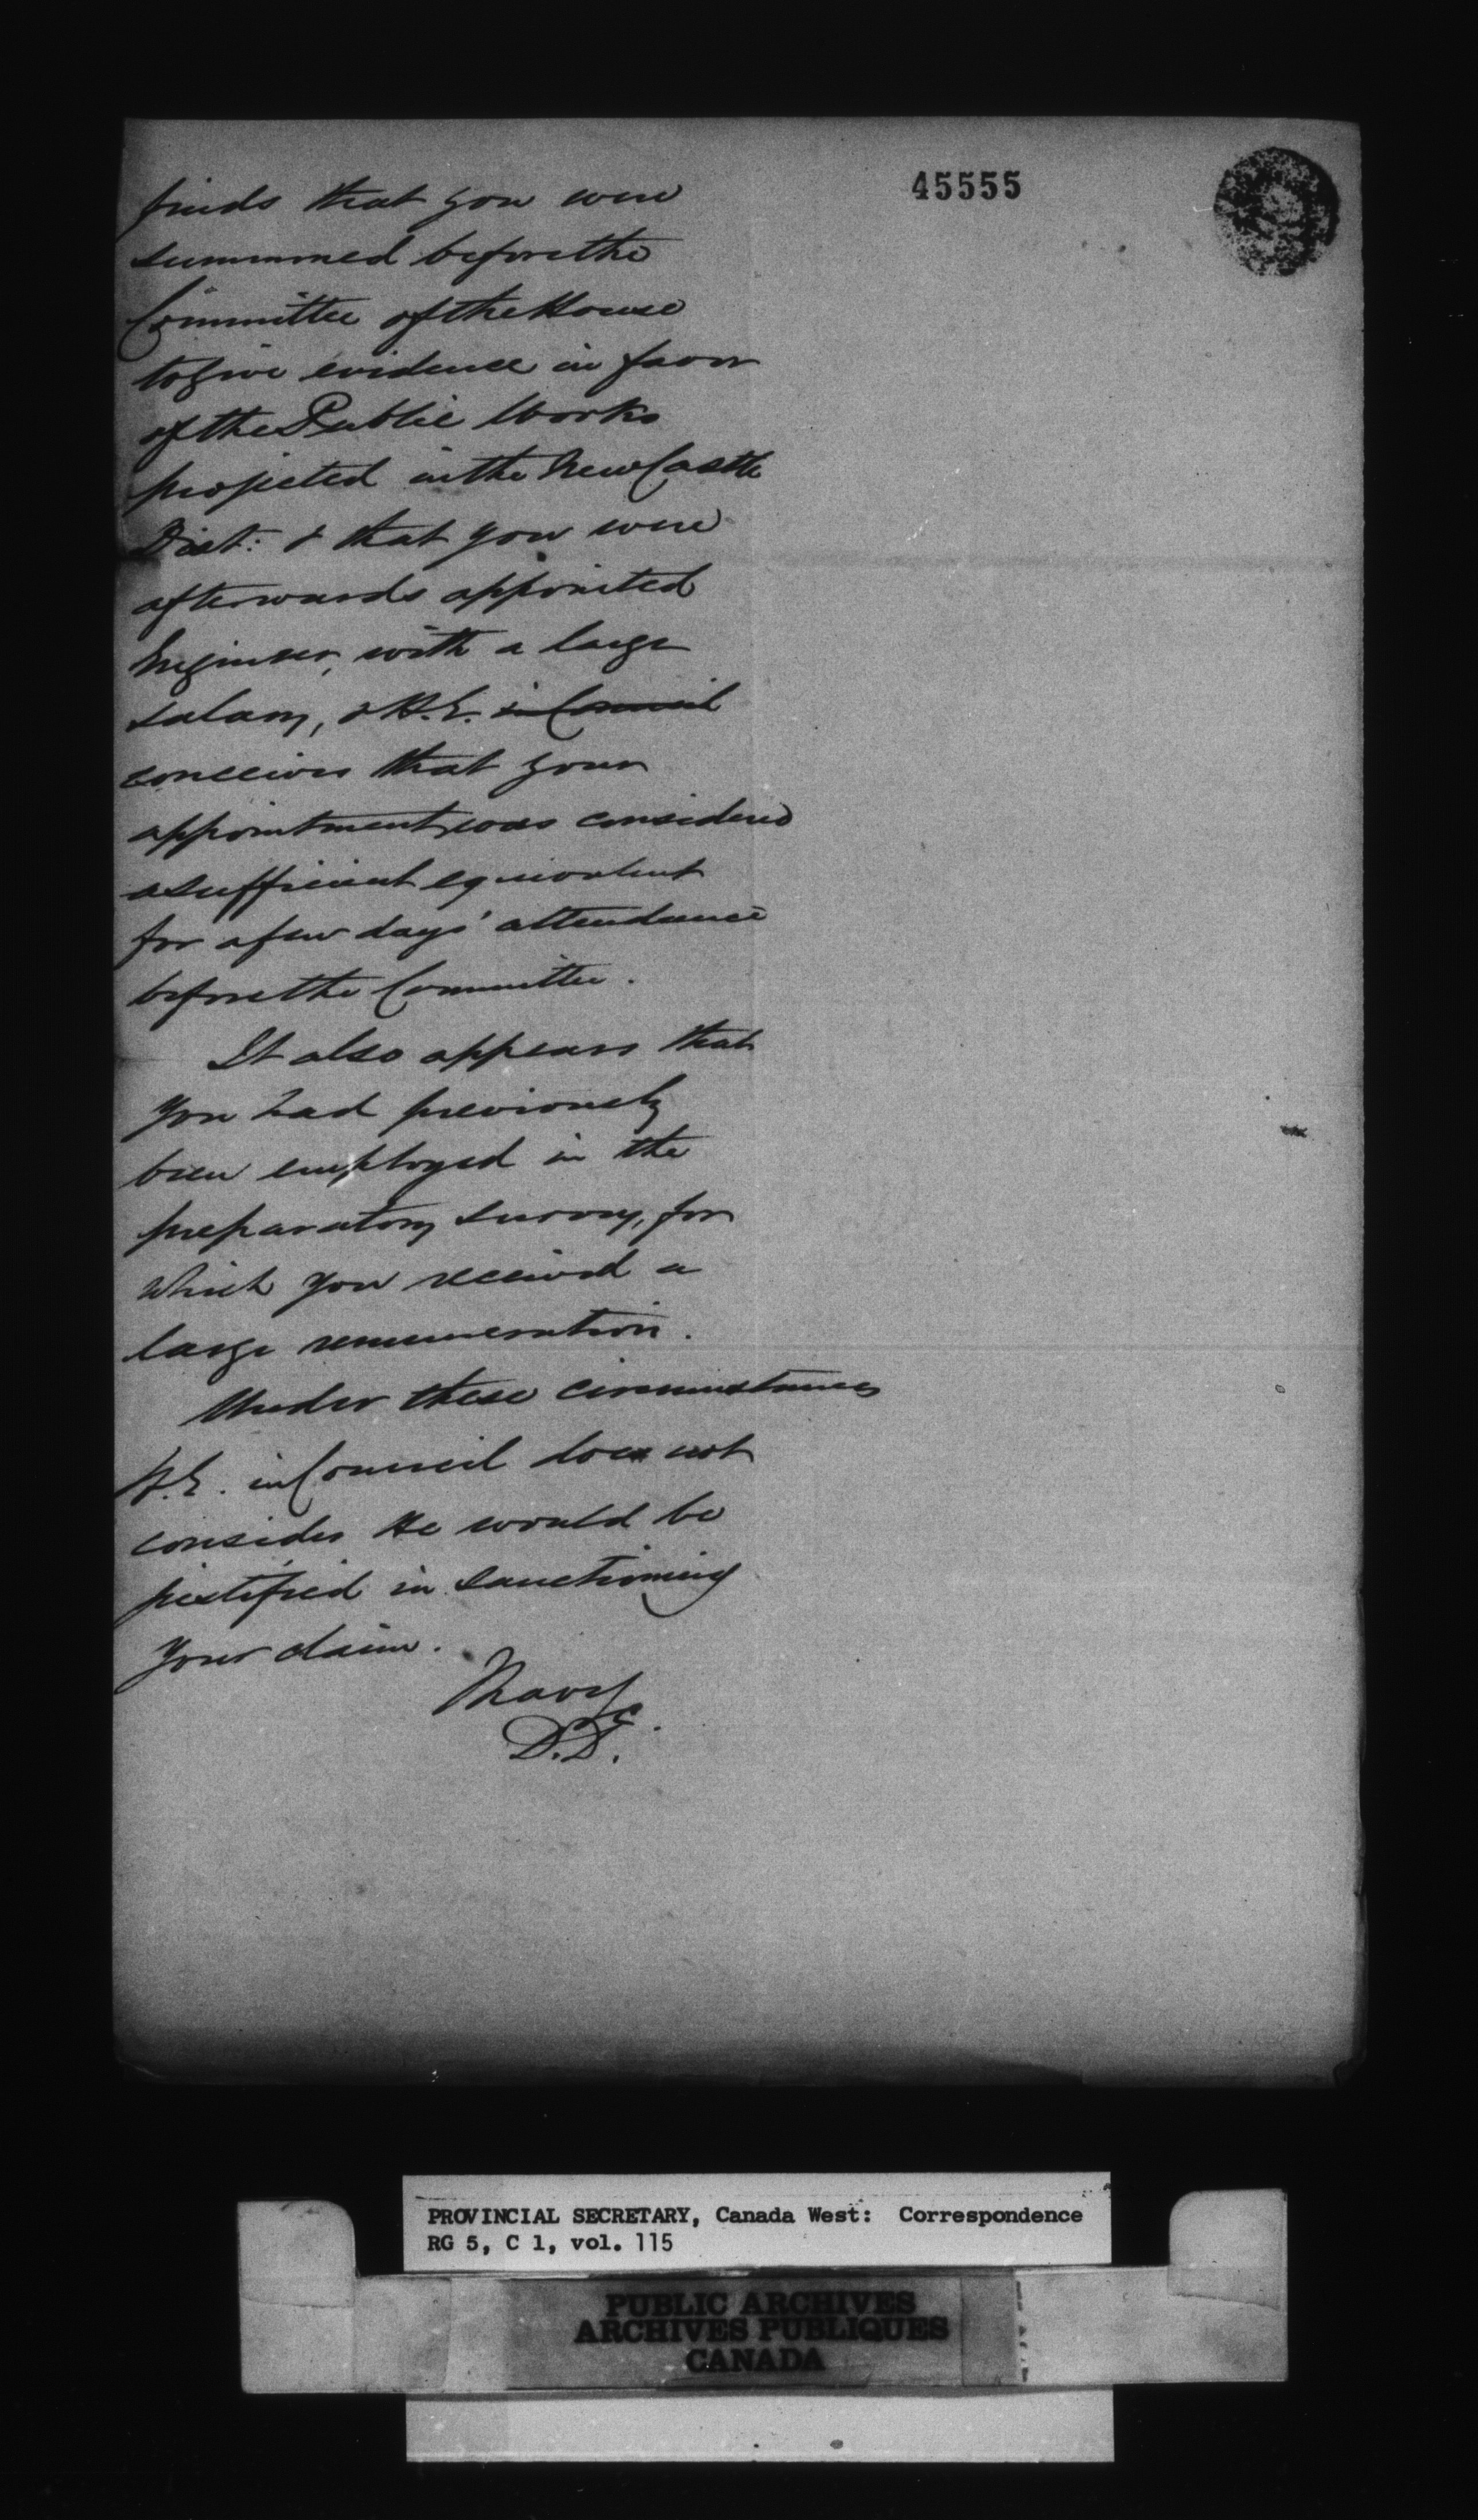 45555
finds that you were
summoned before the
Committee of the House
to give evidence in favor
of the Public Works
projected in the NewCastle
Dist: & that you were
afterwards appointed
Engineer, with a large
salary, & H.E. in Council
conceives that your
appointment was considered
a sufficient equivalent
for a few days' attendance
before the Committee.
It also appears that
you had previously
been employed in the
preparatory survey, for
which you received a
large remuneration.
Under these circumstances
H.E. in Council does not
consider He would be
justified in sanctioning
your claim.
I have &c.
D.D.
PROVINCIAL SECRETARY, Canada West: Correspondence
RG 5, C 1, vol. 115
PUBLIC ARCHIVES
ARCHIVES PUBLIQUES
CANADA